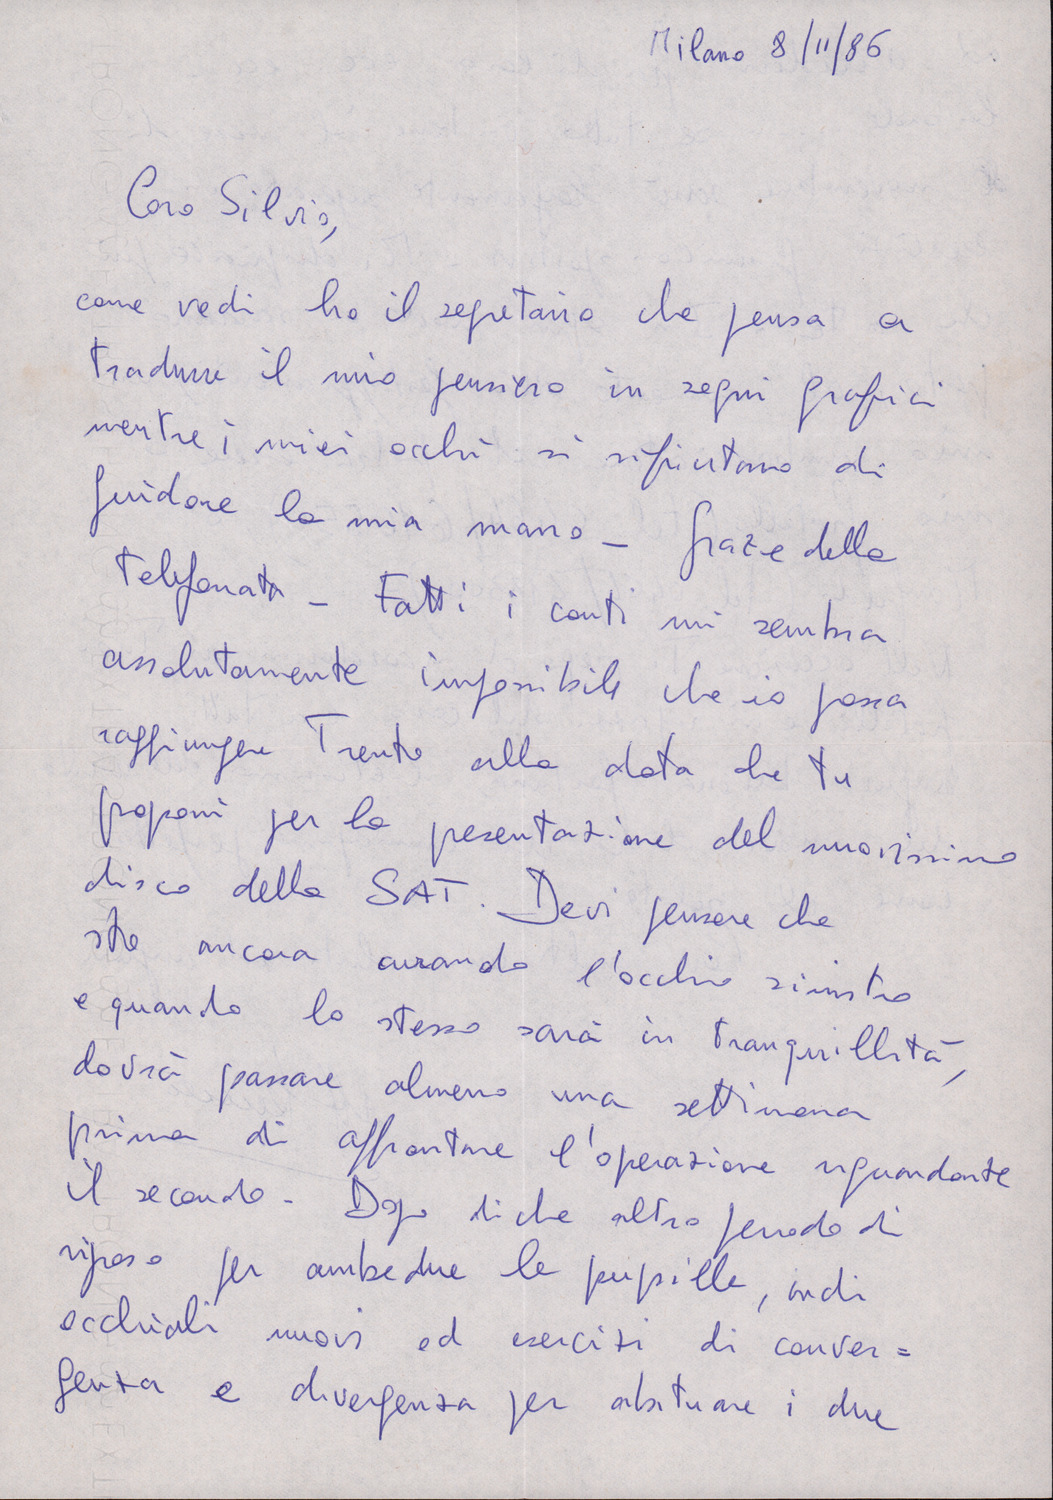 Milano 8/11/86
Caro Silvio,
come vedi ho il segretario che pensa a
tradurre il mio pensiero in segni grafici
mentre i miei occhi si rifiutano di
guidare la mia mano – Grazie della
telefonata – Fatti i conti mi sembra
assolutamente impossibile che io possa
raggiungere Trento alla data che tu
proponi per la presentazione del nuovissimo
disco della SAT. Devi pensare che
sto ancora curando l'occhio sinistro
e quando lo stesso sarà in tranquillità,
dovrà passare almeno una settimana
prima di affrontare l'operazione riguardante
il secondo – Dopo di che altro periodo di
riposo per ambedue le pupille, indi
occhiali nuovi ed esercizi di conver=
genza e divergenza per abituare i due